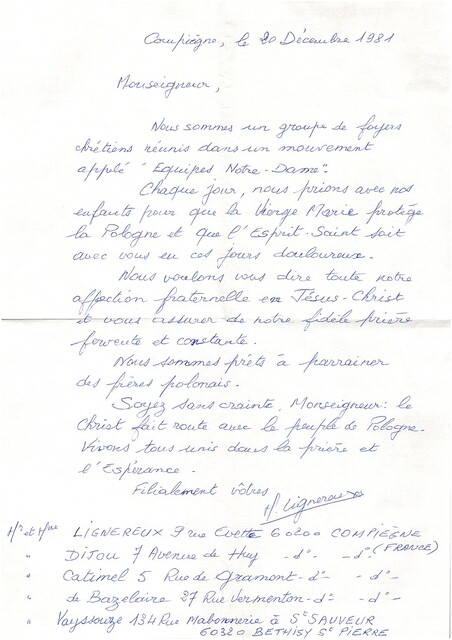 Compiègne, le 20 Décembre 1981
Monseigneur,
Nous sommes un groupe de foyers
chrétiens réunis dans un mouvement
applé "Equipes Notre-Dame".
Chaque jour, nous prions avec nos
enfants pour que la Vierge Marie protège
la Pologne et que l'Esprit-Saint soit
avec vous en ces jours douloureux.
Nous voulons vous dire toute notre
affection fraternelle en Jésus-Christ
et vous assurer de notre fidèle prière
fervente et constante.
Nous sommes prêts à parrainer
des frères polonais.
Soyez sans crainte, Monseigneur: le
Christ fait route avec le peuple de Pologne.
Vivons tous unis dans la prière et
l'Espérance.
Filialement vôtres
H. Lignereux
Mr et Mme LIGNEREUX 9 rue Evette 60200 COMPIEGNE
" DITOU 7 Avenue de Huy -d°- -d°- (FRANCE)
" Catimel 5 Rue de Gramont -d°- -d°-
" de Bazelaire 27 Rue Vermenton -d°- -d°-
" Vayssouze 134 Rue Mabonnerie à St SAUVEUR
60320 BETHISY St PIERRE